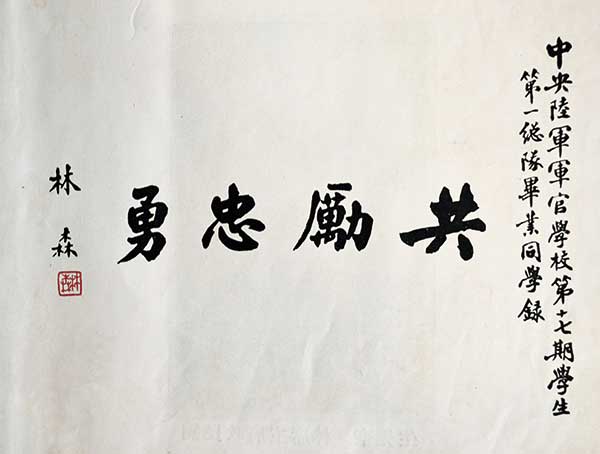 中央陸軍軍官學校第十七期學生
第一総隊畢業同學録
共勵忠勇
林森